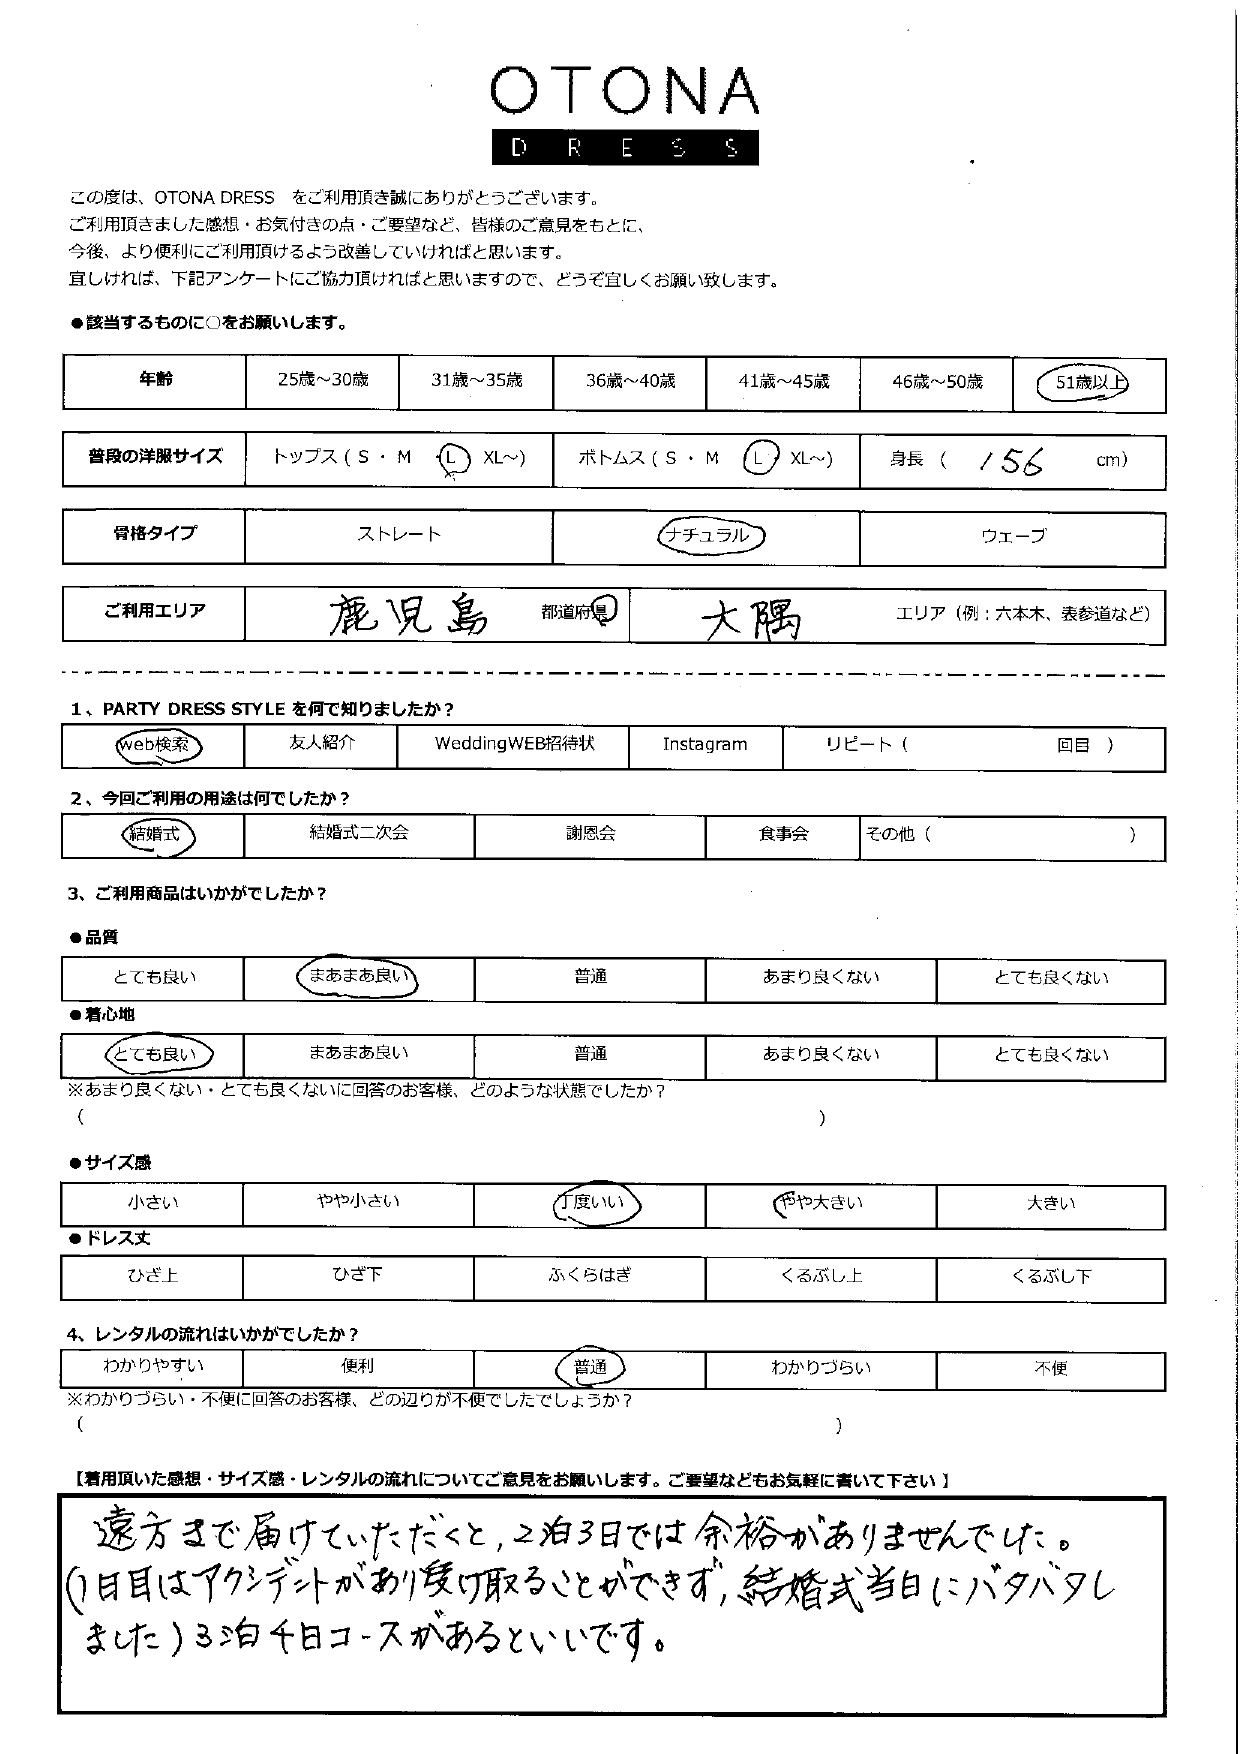 OTONA
DRESS
この度は、OTONA DRESS　をご利用頂き誠にありがとうございます。
ご利用頂きました感想・お気付きの点・ご要望など、皆様のご意見をもとに、
今後、より便利にご利用頂けるよう改善していければと思います。
宜しければ、下記アンケートにご協力頂ければと思いますので、どうぞ宜しくお願い致します。
●該当するものに○をお願いします。
年齢 25歳～30歳 31歳～35歳 36歳～40歳 41歳～45歳 46歳～50歳 51歳以上
普段の洋服サイズ トップス ( S ・ M ・ L XL～) ボトムス ( S ・ M L XL～) 身長 ( 156 cm)
骨格タイプ ストレート ナチュラル ウェーブ
ご利用エリア 鹿児島 都道府県 大隅 エリア（例：六本木、表参道など）
1、PARTY DRESS STYLE を何で知りましたか？
web検索 友人紹介 WeddingWEB招待状 Instagram リピート ( 回目 )
2、今回ご利用の用途は何でしたか？
結婚式 結婚式二次会 謝恩会 食事会 その他 ( )
3、ご利用商品はいかがでしたか？
●品質
とても良い まあまあ良い 普通 あまり良くない とても良くない
●着心地
とても良い まあまあ良い 普通 あまり良くない とても良くない
※あまり良くない・とても良くないに回答のお客様、どのような状態でしたか？
( )
●サイズ感
小さい やや小さい 丁度いい やや大きい 大きい
●ドレス丈
ひざ上 ひざ下 ふくらはぎ くるぶし上 くるぶし下
4、レンタルの流れはいかがでしたか？
わかりやすい 便利 普通 わかりづらい 不便
※わかりづらい・不便に回答のお客様、どの辺りが不便でしたでしょうか？
( )
【着用頂いた感想・サイズ感・レンタルの流れについてご意見をお願いします。ご要望などもお気軽に書いて下さい 】
遠方まで届けていただくと,2泊3日では余裕がありませんでした。
(1日目はアクシデントがあり受け取ることができず,結婚式当日にバタバタし
ました)3泊4日コースがあるといいです。